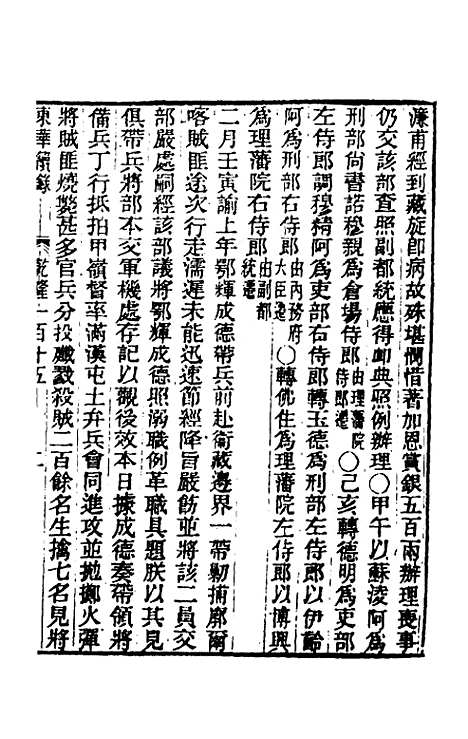 濂甫經到藏旋卽病故殊堪憫惜著加恩賞銀五百兩辦理喪事
仍交該部查照副都統應得卹典照例辦理〇甲午以蘇淩阿爲
刑部尙書諾穆親爲倉場侍郎由理藩院侍郎遷〇己亥轉德明爲吏部
左侍郎調穆精阿爲吏部右侍郎轉玉德爲刑部左侍郎以伊齡
阿爲刑部右侍郎由內務府大臣遷〇轉佛住爲理藩院左侍郎以博興
爲理藩院右侍郎由副都統遷
二月壬寅諭上年鄂輝成德帶兵前赴衞藏邊界一帶勦捕廓爾
喀賊匪途次行走濡遲未能迅速節經降旨嚴飭並將該二員交
部嚴處嗣經該部議將鄂輝成德照溺職例革職具題朕以其見
俱帶兵將部本交軍機處存記以觀後效本日據成德奏帶領將
備兵丁行抵拍甲嶺督率滿漢屯土弁兵會同進攻並拋擲火彈
將賊匪燒斃甚多官兵分投殲戮殺賊二百餘名生擒七名見將
東華續錄 乾隆一百十五